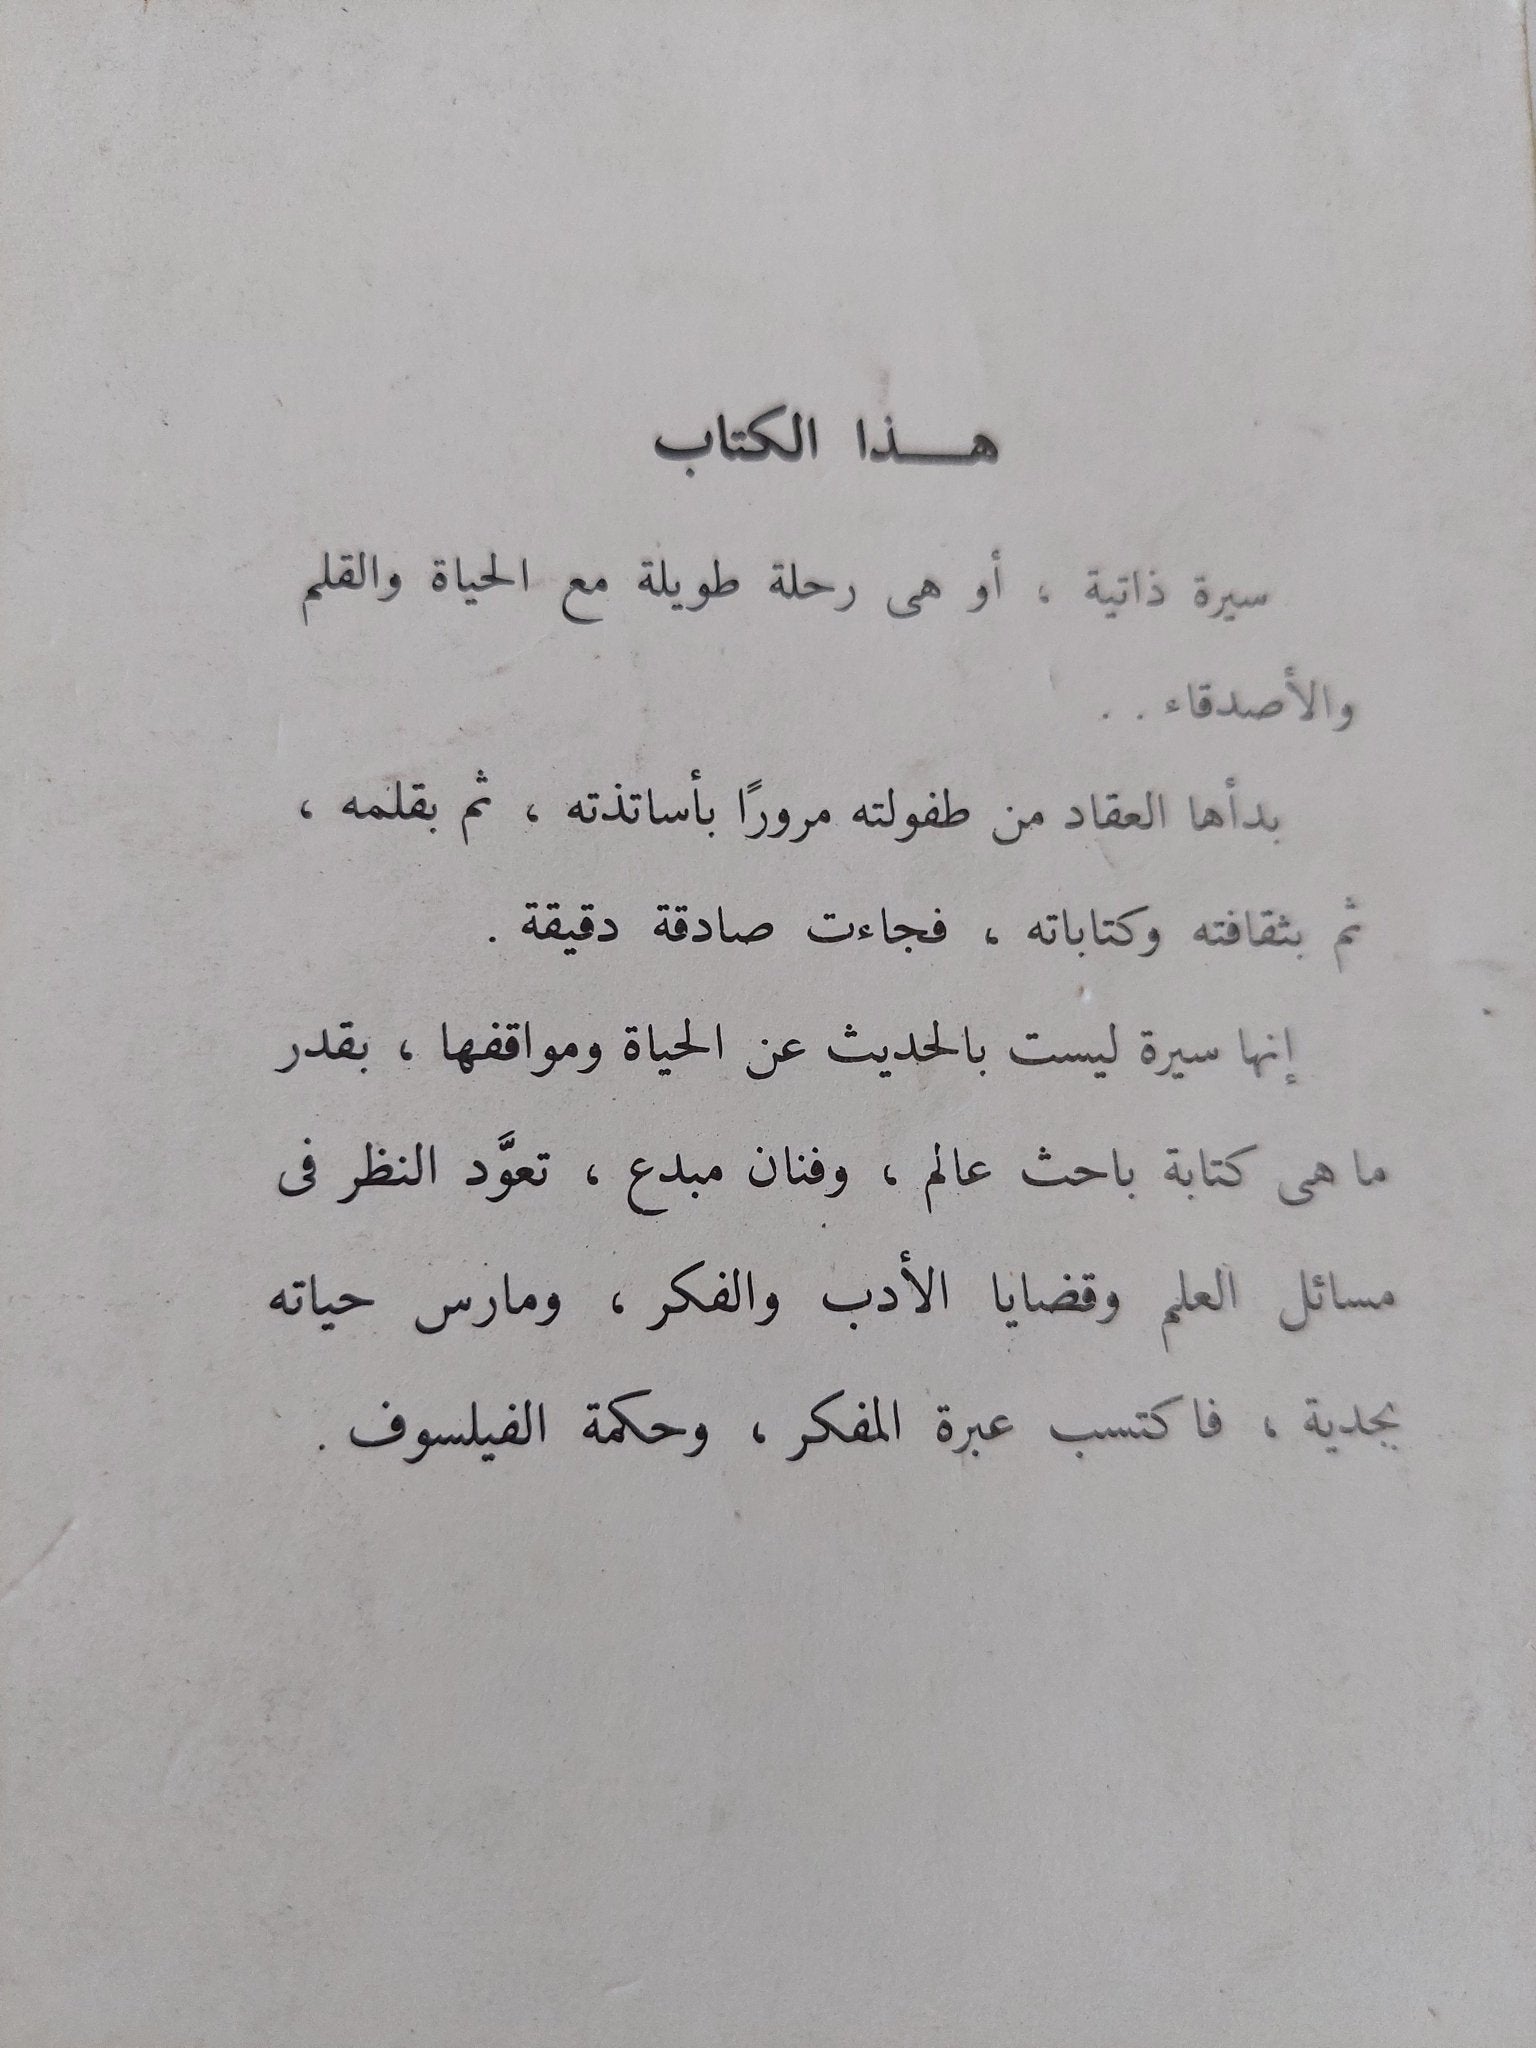 هـــذا الكتاب
سيرة ذاتية ، أو هى رحلة طويلة مع الحياة والقلم
والأصدقاء . .
بدأها العقاد من طفولته مرورًا بأساتذته ، ثم بقلمه ،
ثم بثقافته وكتاباته ، فجاءت صادقة دقيقة .
إنها سيرة ليست بالحديث عن الحياة ومواقفها ، بقدر
ما هى كتابة باحث عالم ، وفنان مبدع ، تعوَّد النظر فى
مسائل العلم وقضايا الأدب والفكر ، ومارس حياته
بجدية ، فاكتسب عبرة المفكر ، وحكمة الفيلسوف .